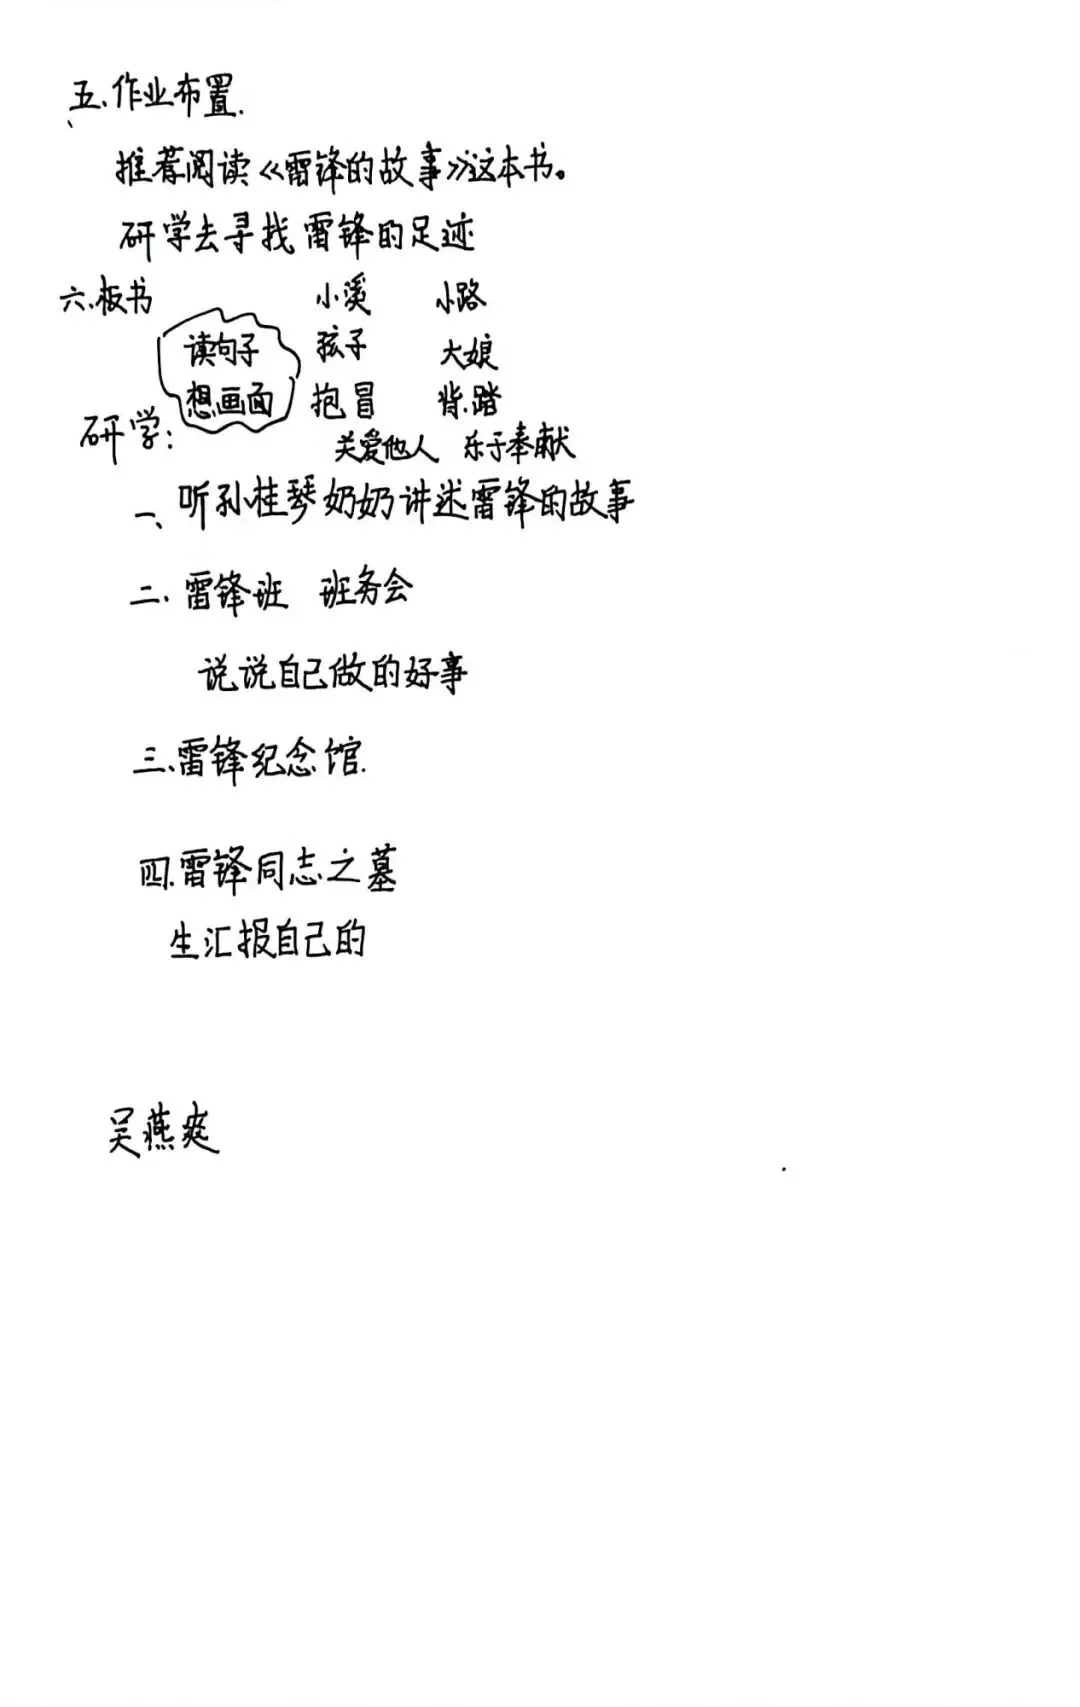 五、作业布置.
推荐阅读《雷锋的故事》这本书。
研学去寻找雷锋的足迹
六、板书 小溪 小路
读句子 孩子 大娘
想画面 抱冒 背.踏
研学:
关爱他人 乐于奉献
一、听孙桂琴奶奶讲述雷锋的故事
二、雷锋班 班务会
说说自己做的好事
三、雷锋纪念馆.
四.雷锋同志之墓
生汇报自己的
吴燕爽